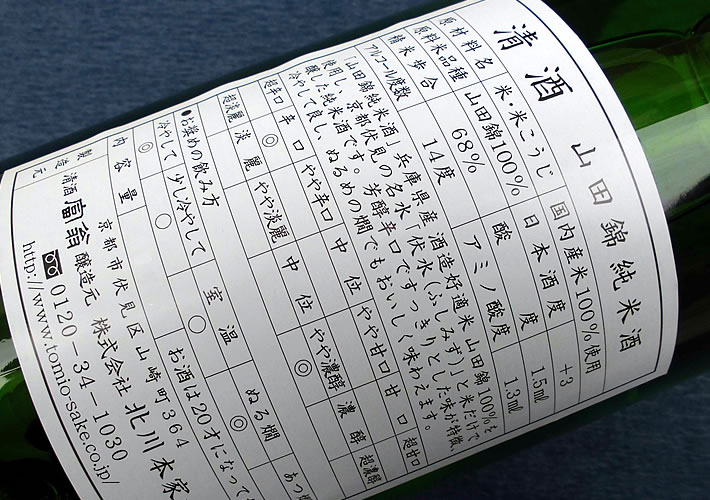 清酒 山田錦純米酒
原材料名 米・米こうじ 国内産米100%使用
原料米品種 山田錦100% 日本酒度 +3
精米歩合 68% 酸度 1.5ml
アルコール度数 14度 アミノ酸度 1.3ml
「山田錦純米酒」兵庫県産 酒造好適米山田錦100%を
使用し、京都伏見の名水「伏水(ふしみず)」と米だけで
醸した純米酒です。芳醇辛口ですっきりとした味が特徴。
冷やして良し、ぬるめの燗でもおいしく味わえます。
超辛口 辛口 やや辛口 中位 やや甘口 甘口 超甘口
◎
超淡麗 淡麗 やや淡麗 中位 やや濃醇 濃醇 超濃醇
◎
●お奨めの飲み方
冷やして 少し冷やして 室温 ぬる燗 あつ燗
◎ ○ ○ ◎
内容量 お酒は20才になって
製造元 京都市伏見区山崎町364
清酒 富翁 醸造元 株式会社 北川本家
0120-34-1030
http://www.tomio-sake.co.jp/